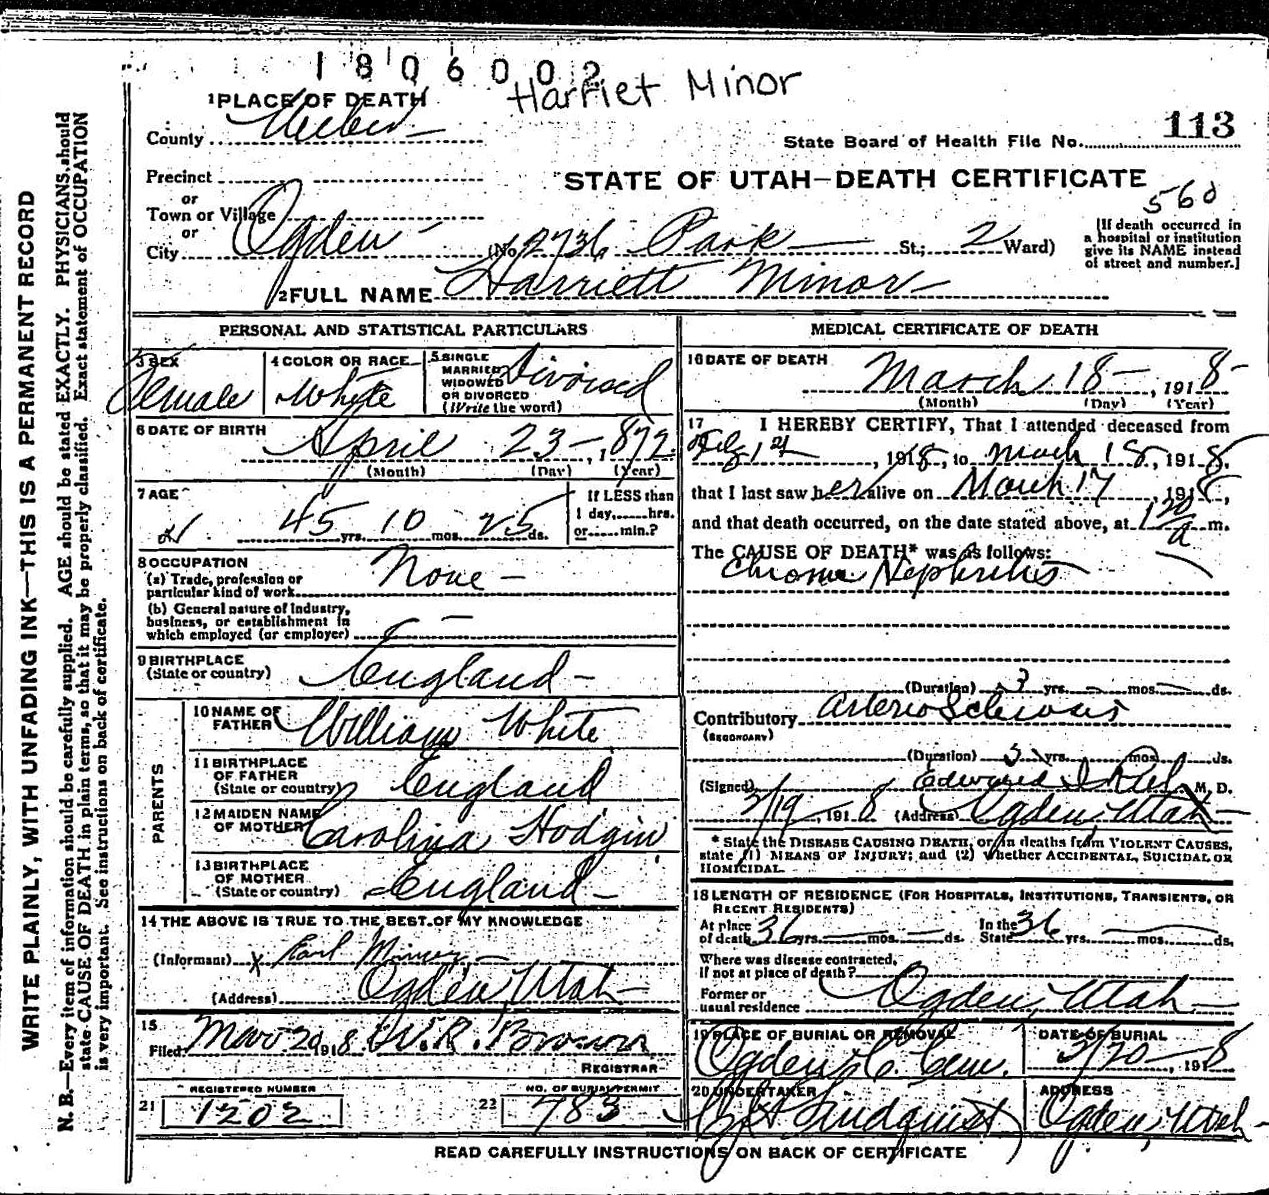 1806002
Harriet Minor
1 PLACE OF DEATH
County Weber
State Board of Health File No. 113
Precinct
or
Town or Village
or
City Ogden
STATE OF UTAH—DEATH CERTIFICATE
560
(No. 2736 Park St.; 2 Ward)
[If death occurred in
a hospital or institution
give its NAME instead
of street and number.]
2 FULL NAME Harriett Minor
PERSONAL AND STATISTICAL PARTICULARS
3 SEX
Female
4 COLOR OR RACE
White
5 SINGLE
MARRIED
WIDOWED
OR DIVORCED
(Write the word)
Divorced
6 DATE OF BIRTH
April 23, 1872
(Month) (Day) (Year)
7 AGE
45 yrs. 10 mos. 25 ds.
If LESS than
1 day,......hrs.
or......min.?
8 OCCUPATION
(a) Trade, profession or
particular kind of work
None
(b) General nature of industry,
business, or establishment in
which employed (or employer)
9 BIRTHPLACE
(State or country)
England
PARENTS
10 NAME OF
FATHER
William White
11 BIRTHPLACE
OF FATHER
(State or country)
England
12 MAIDEN NAME
OF MOTHER
Carolina Hodgin
13 BIRTHPLACE
OF MOTHER
(State or country)
England
14 THE ABOVE IS TRUE TO THE BEST OF MY KNOWLEDGE
(Informant) x Earl
(Address) Ogden, Utah
15
Filed Mar 20 1918 W. R. Brown
REGISTRAR
21 REGISTERED NUMBER
1202
22 NO. OF BURIAL PERMIT
783
MEDICAL CERTIFICATE OF DEATH
16 DATE OF DEATH
March 18, 1918
(Month) (Day) (Year)
17 I HEREBY CERTIFY, That I attended deceased from
1918, to March 18, 1918,
that I last saw her alive on March 17, 1918,
and that death occurred, on the date stated above, at 1 20 a m.
The CAUSE OF DEATH* was as follows:
Chronic Nephritis
(Duration) 3 yrs. mos. ds.
Contributory Arterio Sclerosis
(SECONDARY)
(Duration) 3 yrs. mos. ds.
(Signed) Edward I. M. D.
3/19, 1918 (Address) Ogden, Utah
* State the DISEASE CAUSING DEATH, or, in deaths from VIOLENT CAUSES,
state (1) MEANS OF INJURY; and (2) whether ACCIDENTAL, SUICIDAL OR
HOMICIDAL.
18 LENGTH OF RESIDENCE (FOR HOSPITALS, INSTITUTIONS, TRANSIENTS, OR
RECENT RESIDENTS)
At place
of death 36 yrs. mos. ds.
In the
State 36 yrs. mos. ds.
Where was disease contracted,
if not at place of death?
Former or
usual residence
Ogden, Utah
19 PLACE OF BURIAL OR REMOVAL
Ogden C. Cem.
DATE OF BURIAL
3/20, 1918
20 UNDERTAKER
Lindquist
ADDRESS
Ogden, Utah
READ CAREFULLY INSTRUCTIONS ON BACK OF CERTIFICATE
WRITE PLAINLY, WITH UNFADING INK—THIS IS A PERMANENT RECORD
N. B.—Every item of information should be carefully supplied. AGE should be stated EXACTLY. PHYSICIANS should
state CAUSE OF DEATH in plain terms, so that it may be properly classified. Exact statement of OCCUPATION
is very important. See instructions on back of certificate.